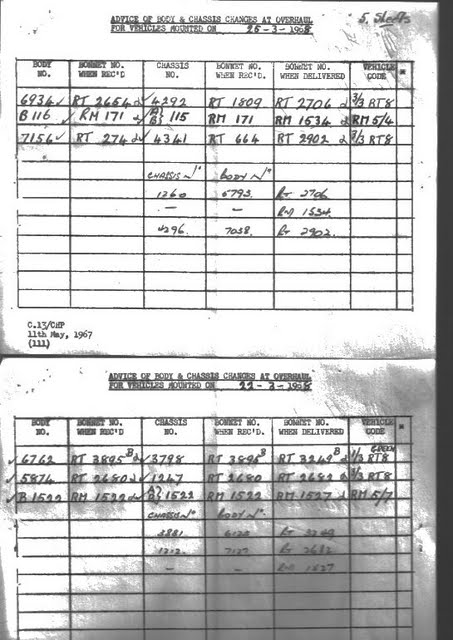 ADVICE OF BODY & CHASSIS CHANGES AT OVERHAUL 5. Sheets
FOR VEHICLES MOUNTED ON 25-3-1968
BODY NO. BONNET NO. WHEN REC'D CHASSIS NO. BONNET NO. WHEN REC'D. BONNET NO. WHEN DELIVERED VEHICLE CODE *
6934 ✓ RT 2654 ✓ 4292 RT 1809 RT 2706 3/3 RT8
B 116 ✓ RM 171 115 RM 171 RM 1534 RM 5/4
7156 ✓ RT 274 4341 RT 664 RT 2902 3/3 RT8
CHASSIS No BODY No
1260 6793. Rt 2706
— — Rm 1534.
4296. 7038. Rt 2902.
C.13/CHP
11th May, 1967
(111)
ADVICE OF BODY & CHASSIS CHANGES AT OVERHAUL
FOR VEHICLES MOUNTED ON 22-3-1968
BODY NO. BONNET NO. WHEN REC'D CHASSIS NO. BONNET NO. WHEN REC'D. BONNET NO. WHEN DELIVERED VEHICLE CODE *
GREEN
✓ 6762 RT 3895 B ✓ 3798 RT 3895 B RT 3249 B 1/3 RT8
✓ 5874 RT 2680 ✓ 1247 RT 2680 RT 2682 3/3 RT8
✓ B 1522 RM 1522 1522 RM 1522 RM 1527 RM 5/7
CHASSIS No BODY No.
Rt 3249
1212. 7127 Rt 2682
— — Rm 1527